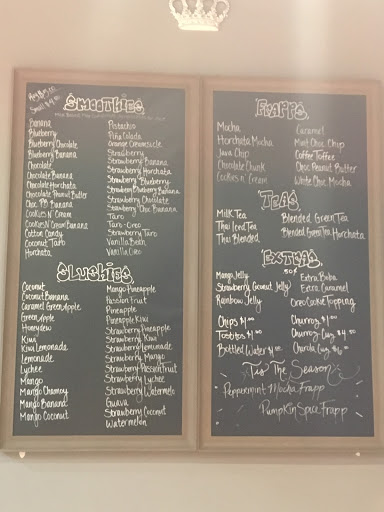 Reg $5.00
Small $4.00
Smoothies
Banana
Blueberry
Blueberry Chocolate
Blueberry Banana
Chocolate
Chocolate Banana
Chocolate Horchata
Chocolate Peanut Butter
Choc. PB Banana
Cookies N' Cream
Cookies N' Cream Banana
Cotton Candy
Coconut Taro
Horchata
Pistachio
Piña Colada
Orange Creamsicle
Strawberry
Strawberry Banana
Strawberry Horchata
Strawberry Blueberry
Strawberry Blueberry Banana
Strawberry Chocolate
Strawberry Choc Banana
Taro
Taro-Oreo
Strawberry Taro
Vanilla Bean
Vanilla Oreo
Slushies
Coconut
Coconut Banana
Caramel Green Apple
Green Apple
Honeydew
Kiwi
Kiwi Lemonade
Lemonade
Lychee
Mango
Mango Chamoy
Mango Banana
Mango Coconut
Mango Pineapple
Passion Fruit
Pineapple
Pineapple Kiwi
Strawberry Pineapple
Strawberry Kiwi
Strawberry Lemonade
Strawberry Mango
Strawberry Passion Fruit
Strawberry Lychee
Strawberry Watermelon
Guava
Strawberry Coconut
Watermelon
Frapps
Mocha
Horchata Mocha
Java Chip
Chocolate Chunk
Cookies n' Cream
Caramel
Mint Choc Chip
Coffee Toffee
Choc Peanut Butter
White Choc Mocha
Teas
Milk Tea
Thai Iced Tea
Thai Blended
Blended Green Tea
Blended Green Tea Horchata
Extras
50¢
Mango Jelly
Strawberry Coconut Jelly
Rainbow Jelly
Extra Boba
Extra Caramel
Oreo Cookie Topping
Chips $1.00
Tostitos $1.00
Bottled Water $1.00
Churroz $1.00
Churroz Cup $4.50
Chocola Cup $6.00
'Tis The Season
Peppermint Mocha Frapp
Pumpkin Spice Frapp